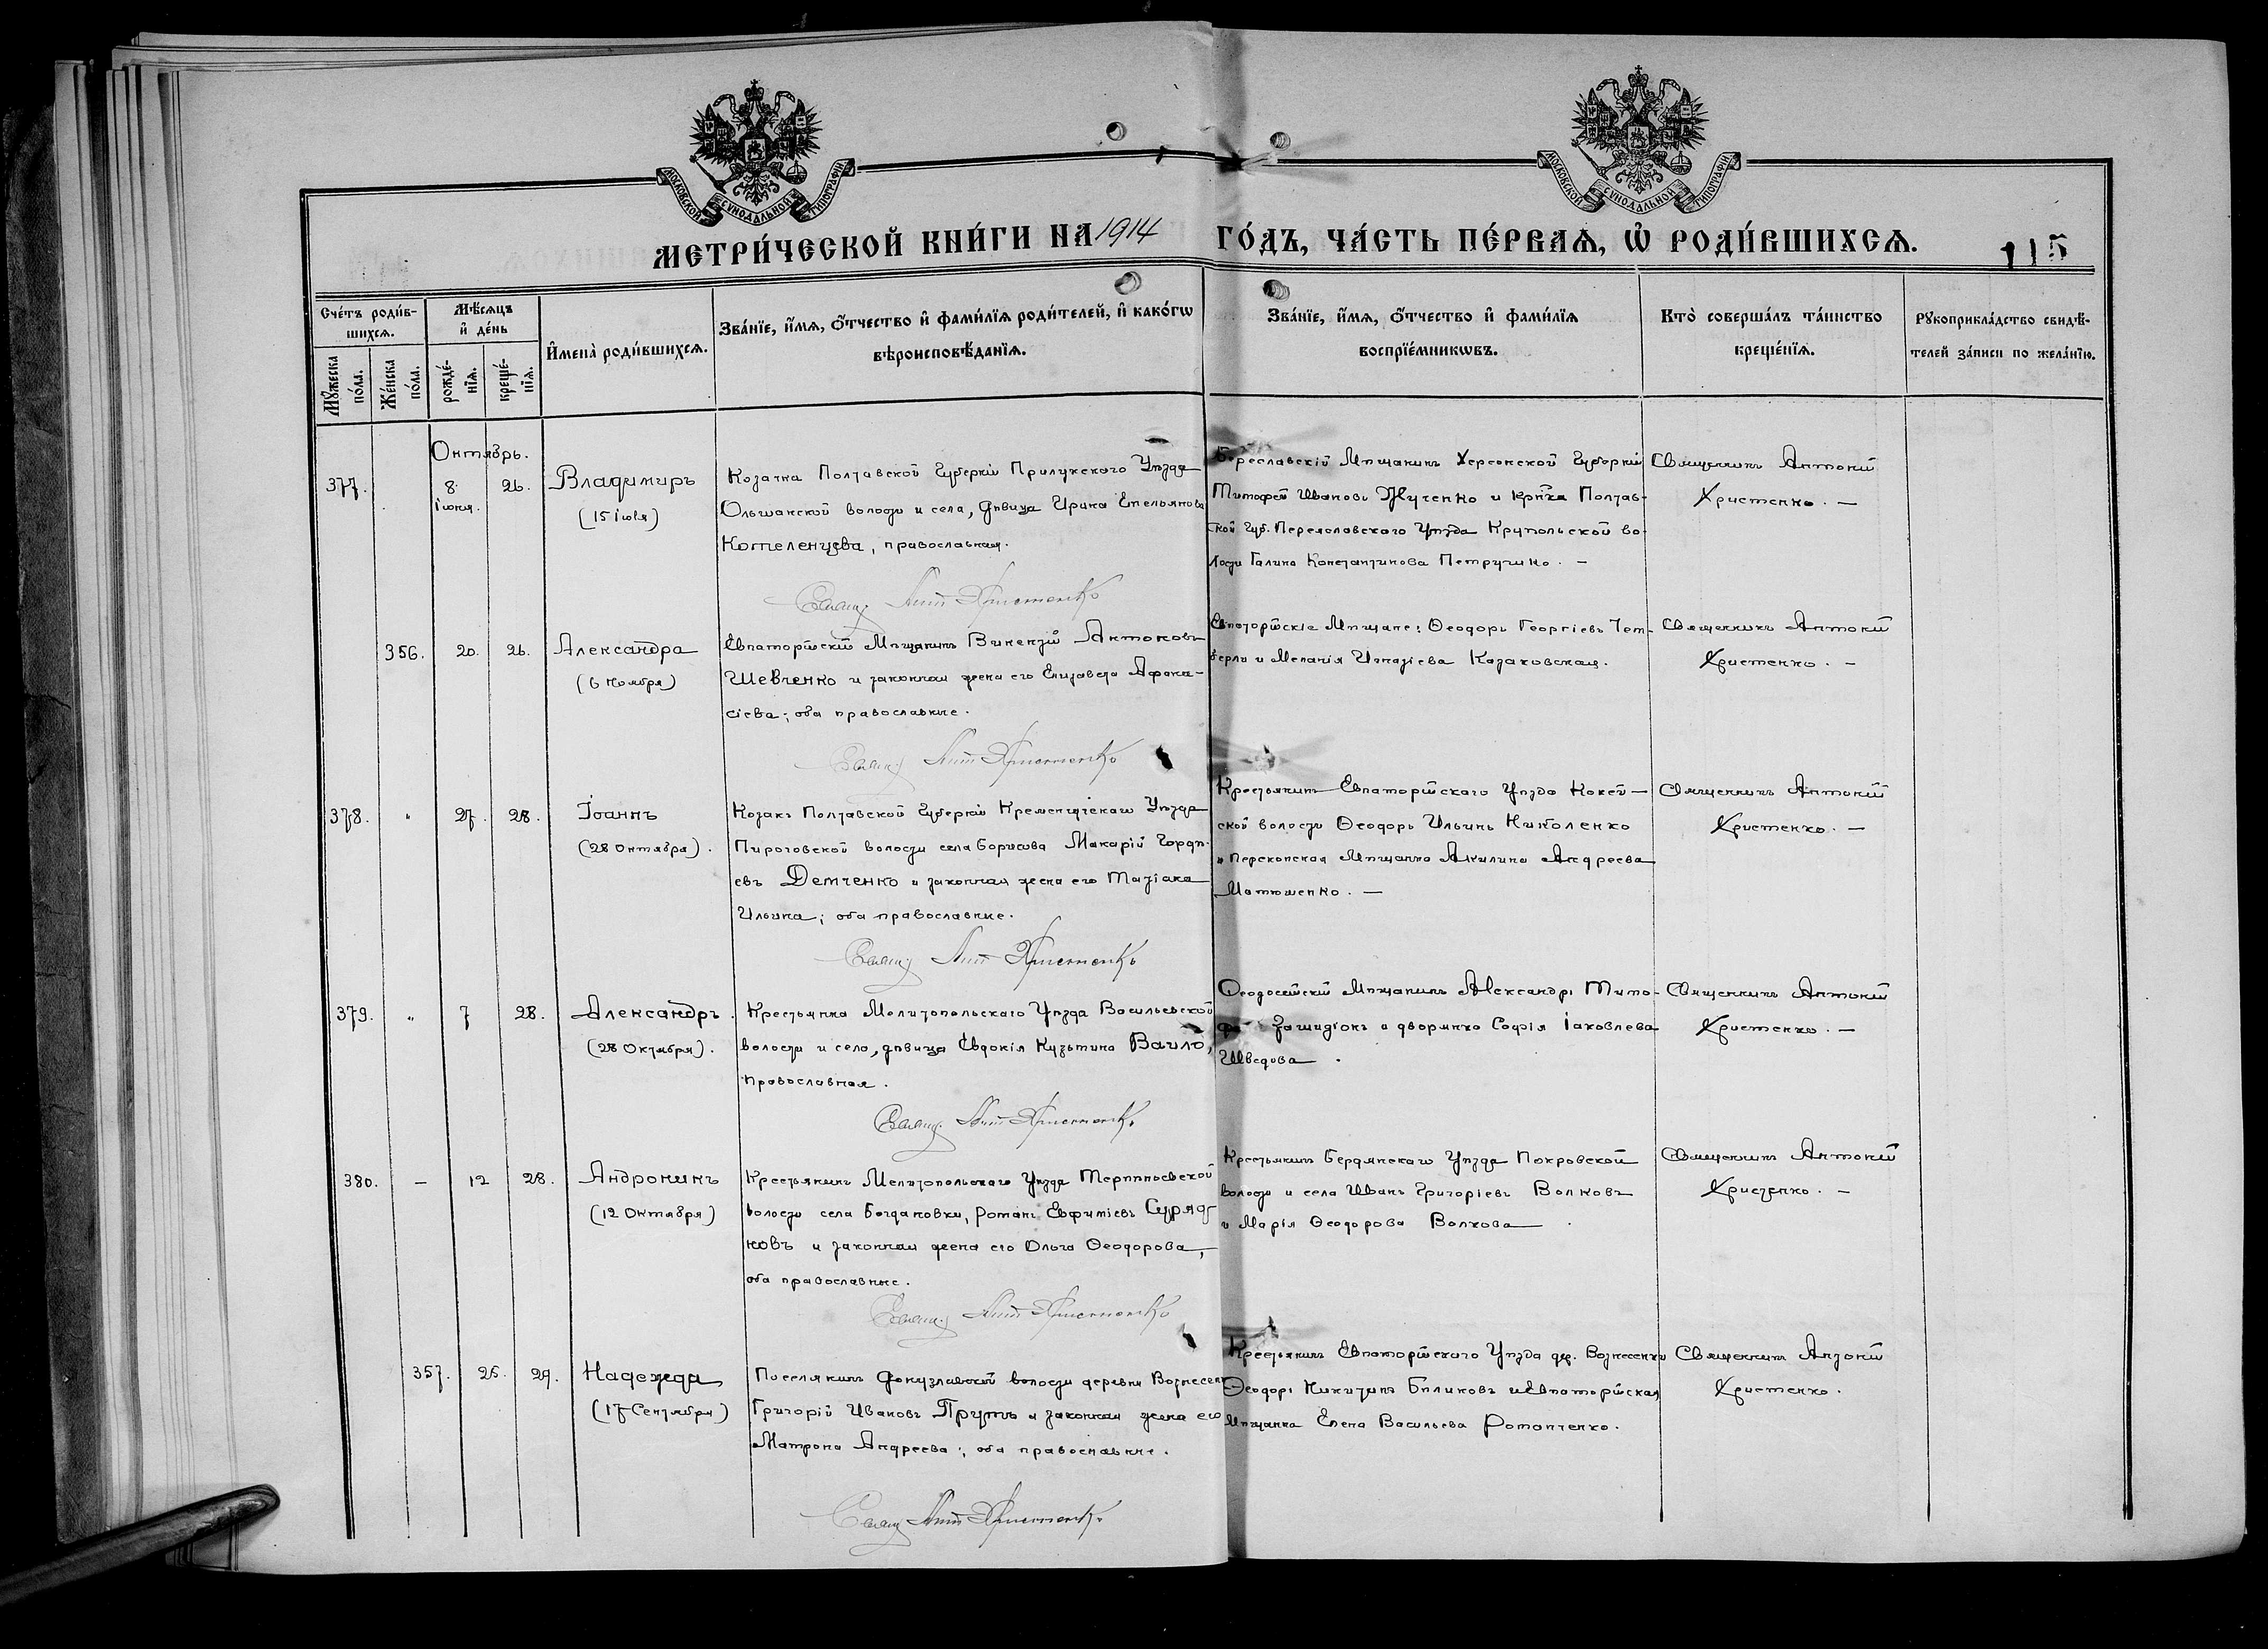 МОСКОВСКОЙ СУНОДАЛЬНОЙ ТИПОГРАФІИ
МОСКОВСКОЙ СУНОДАЛЬНОЙ ТИПОГРАФІИ
МЕТРИ́ЧЕСКОЙ КНИ́ГИ НА 1914 ГО́ДЪ, ЧА́СТЬ ПЕ́РВАѦ, Ѡ҆ РОДИ́ВШИХСѦ.
115
Сче́тъ роди́в-
шихсѧ.
Мꙋ́жеска
по́ла.
Же́нска
по́ла.
Мѣ́сѧцъ
и҆ де́нь
рожде́-
нїѧ.
креще́-
нїѧ.
И҆мена̀ роди́вшихсѧ.
Зва́нїе, и҆́мѧ, ѻ҆́тчество и҆ фами́лїѧ роди́телей, и҆ како́гѡ
вѣроисповѣ́данїѧ.
Зва́нїе, и҆́мѧ, ѻ҆́тчество и҆ фами́лїѧ
воспрїе́мникѡвъ.
Кто̀ соверша́лъ та́инство
креще́нїѧ.
Рꙋкоприкла́дство свидѣ́-
телей за́писи по жела́нїю.
Октябрь.
377.
8
Iюня.
26.
Владимиръ
(15 Iюля)
Козачка Полтавской Губерніи Прилукскаго Уѣзда
Ольшанской волости и села, дѣвица Ирина Емельянова
Котеленцева, православная.
Свящ. Ант Христенко
Береславскій Мѣщанинъ Херсонской Губерніи
Тимофей Ивановъ Жученко и кр-нка Полтав-
ской Губ. Переяславскаго Уѣзда Крупольской во-
лости Галина Константинова
Священникъ Антоній
Христенко. —
356.
20.
26.
Александра
(6 Ноября)
Евпаторійскій Мѣщанинъ Викентій Антоновъ
Шевченко и законная жена его Елизавета Афана-
сіева; оба православные.
Свящ. Ант Христенко
Евпаторійскіе Мѣщане: Ѳеодоръ Георгіевъ
и Меланія Игнатіева Казаковская.
Священникъ Антоній
Христенко. —
378.
"
27.
28.
Іоаннъ
(28 Октября).
Козакъ Полтавской Губерніи Кременчугскаго Уѣзда
Пироговской волости села Борисова Макарій Гордѣ-
евъ Демченко и законная жена его Татіана
Ильина; оба православные.
Свящ. Ант Христенко
Крестьянинъ Евпаторійскаго Уѣзда Кокей-
ской волости Ѳеодоръ Ильинъ Николенко
и Перекопская Мѣщанка Акилина Андреева
Матюшенко. —
Священникъ Антоній
Христенко. —
379.
"
7
28.
Александръ.
(28 Октября).
Крестьянка Мелитопольскаго Уѣзда Васильевской
волости и села, дѣвица Евдокія Кузьмина Ваило,
православная.
Свящ. Ант Христенко
Ѳеодосійскій Мѣщанинъ Александръ Тимо-
и дворянка Софія Іаковлева
Шведова.
Священникъ Антоній
Христенко. —
380.
—
12
28.
Андроникъ
(12 Октября)
Крестьянинъ Мелитопольскаго Уѣзда Терпѣньевской
волости села Богдановки, Романъ Евфиміевъ
и законная жена его Ольга Ѳеодорова,
оба православные.
Свящ. Ант Христенко
Крестьянинъ Бердянскаго Уѣзда Покровской
волости и села Иванъ Григоріевъ Волковъ
и Марія Ѳеодорова Волкова.
Священникъ Антоній
Христенко. —
357.
25.
29.
Надежда
(17 Сентября)
Поселянинъ Донузлавской волости деревни
Григорій Ивановъ Прутъ и законная жена его
Матрона Андреева; оба православные.
Свящ Ант Христенко
Крестьянинъ Евпаторійскаго Уѣзда дер. Вознесенки
Ѳеодоръ Никитинъ Биликовъ и Евпаторійская
Мѣщанка Елена Васильева Потапченко.
Священникъ Антоній
Христенко.